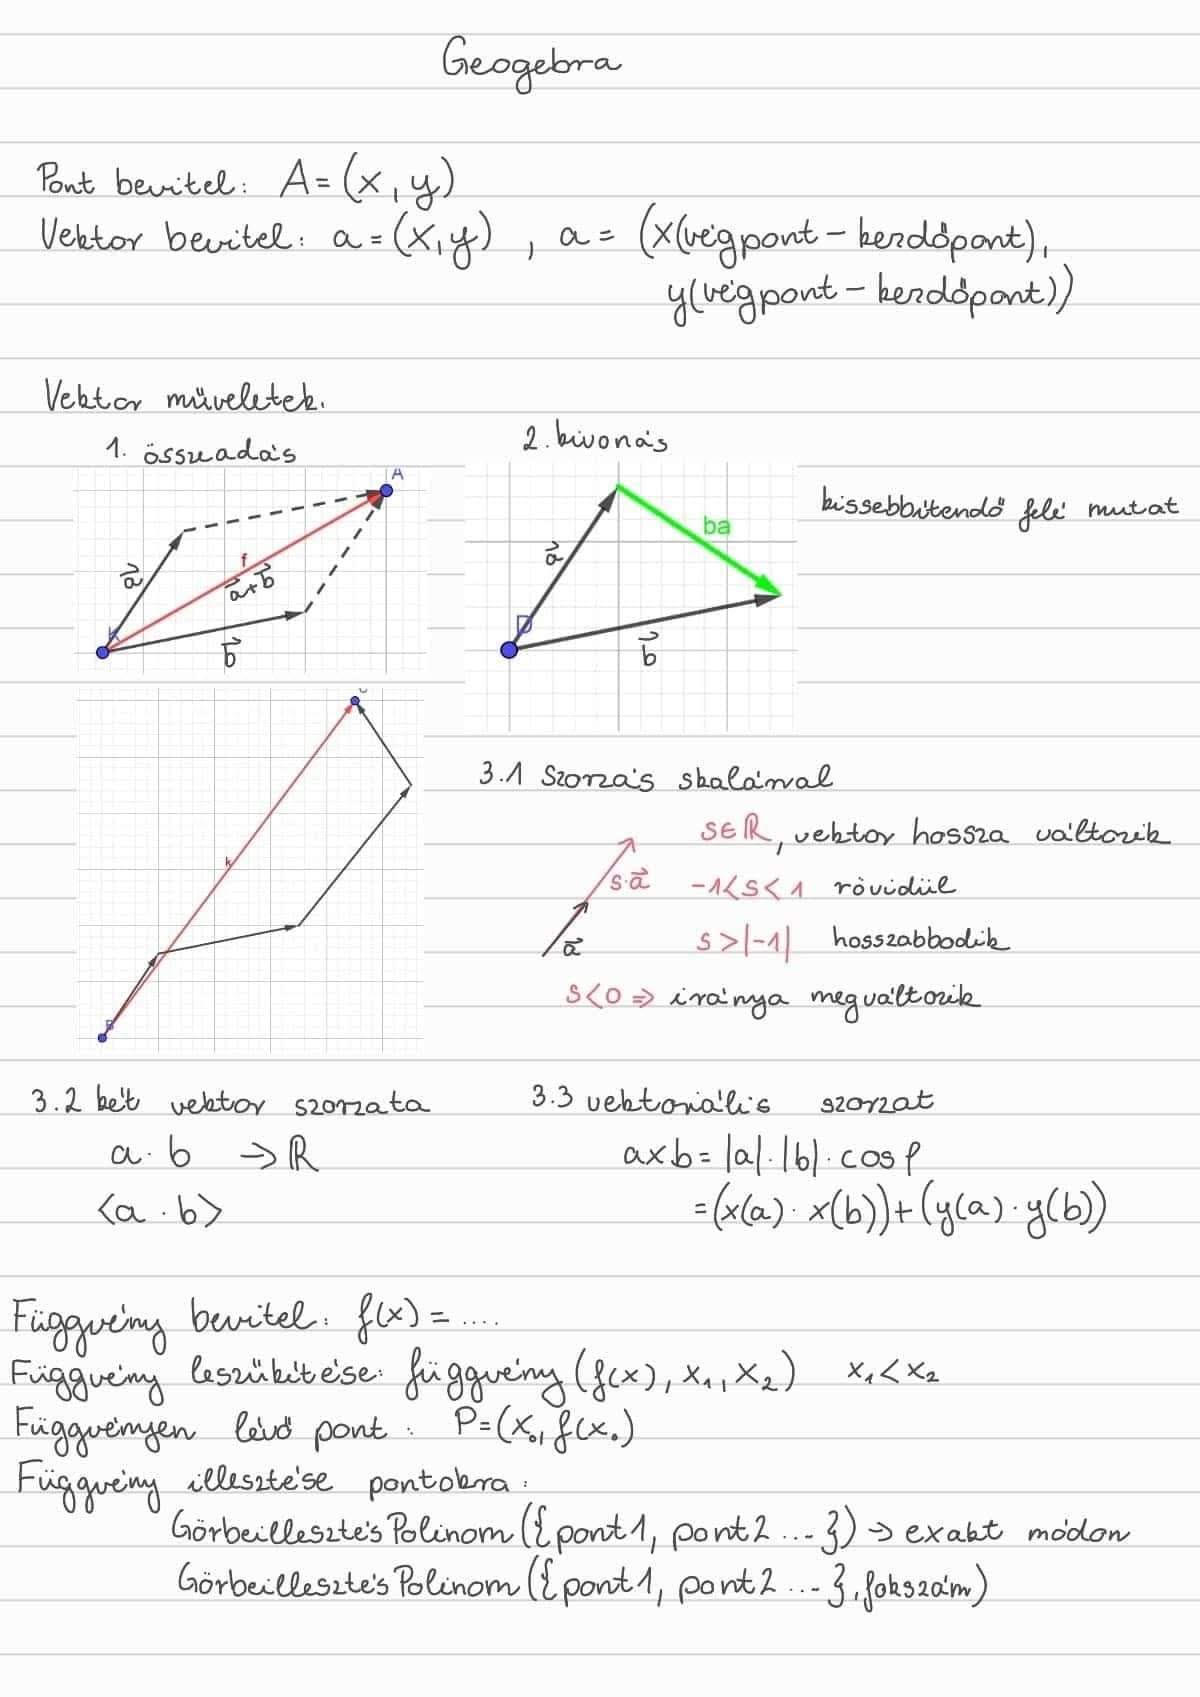 Geogebra
Pont bevitel: A = (x, y)
Vektor bevitel: a = (x, y) , a = (x(végpont - kezdőpont),
y(végpont - kezdőpont))
Vektor műveletek.
1. összeadás
2. kivonás
kissebbítendő felé mutat
A
a⃗
f
a⃗+b⃗
K
b⃗
ba
a⃗
D
b⃗
k
B
3.1 Szorzás skalárral
s∈ℝ, vektor hossza változik
s·a⃗ -1<s<1 rövidül
a⃗ s>|-1| hosszabbodik
s<0 ⇒ iránya megváltozik
3.2 két vektor szorzata
a · b → ℝ
<a · b>
3.3 vektoriális szorzat
a×b = |a|·|b|·cos φ
= (x(a)·x(b))+(y(a)·y(b))
Függvény bevitel: f(x) = ....
Függvény leszűkítése: függvény(f(x), x₁, x₂) x₁<x₂
Függvényen lévő pont: P=(x₀, f(x₀)
Függvény illesztése pontokra:
GörbeillesztésPolinom({pont1, pont2 ... }) → exakt módon
GörbeillesztésPolinom({pont1, pont2 ... }, fokszám)